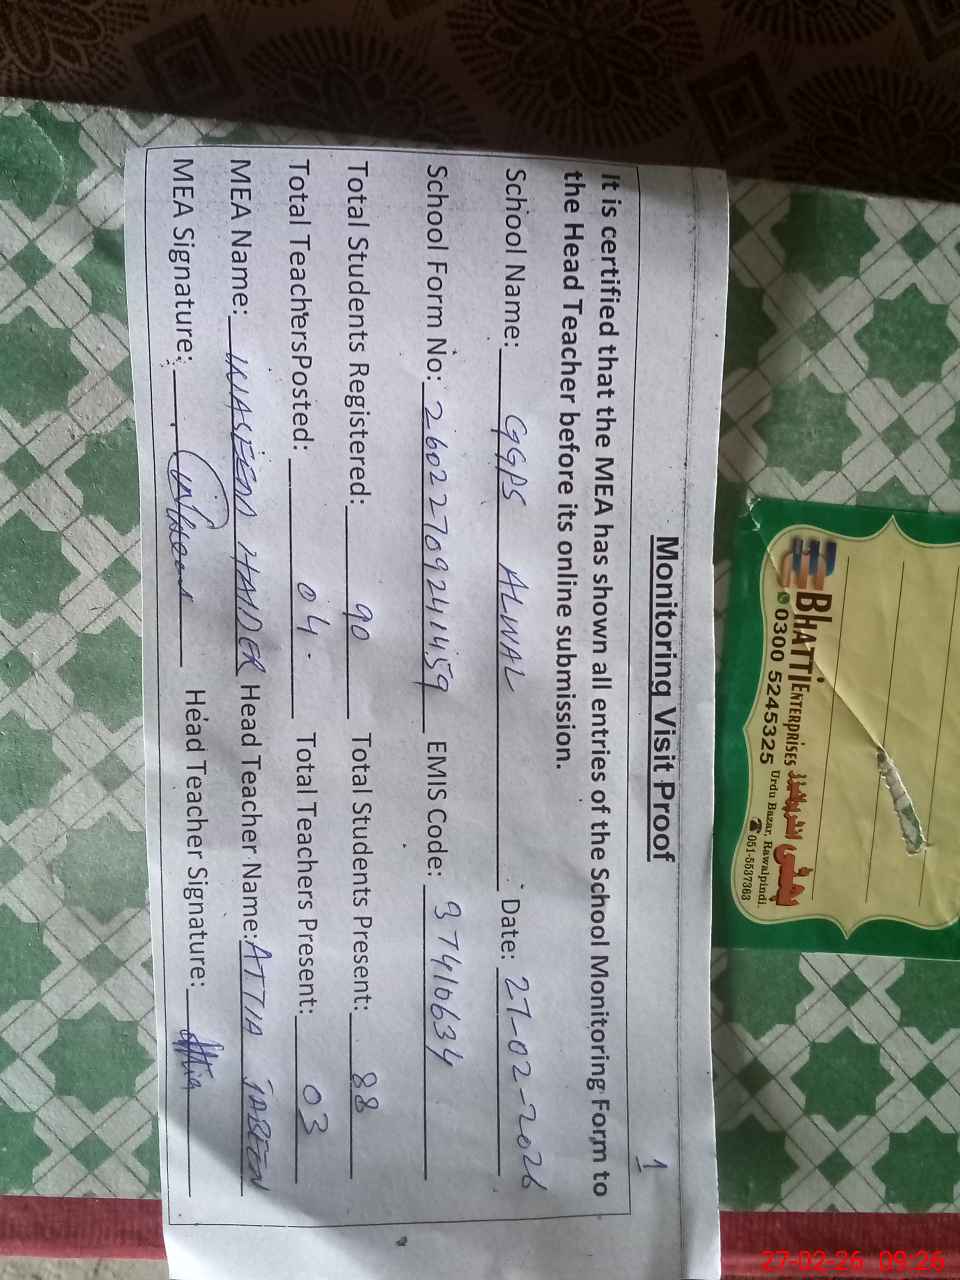 1
Monitoring Visit Proof
It is certified that the MEA has shown all entries of the School Monitoring Form to
the Head Teacher before its online submission.
School Name: GGPS ALWAL Date: 27-02-2026
School Form No: 26022709241459 EMIS Code: 37410634
Total Students Registered: 90 Total Students Present: 88
Total TeachersPosted: 04 Total Teachers Present: 03
MEA Name: WASEEM HAIDER Head Teacher Name: ATTIA JABEEN
MEA Signature: Waseem Head Teacher Signature: Attia
BHATTI ENTERPRISES بھٹی انٹرپرائزز
0300 5245325 Urdu Bazar, Rawalpindi.
051-5537363
27-02-26 09:26